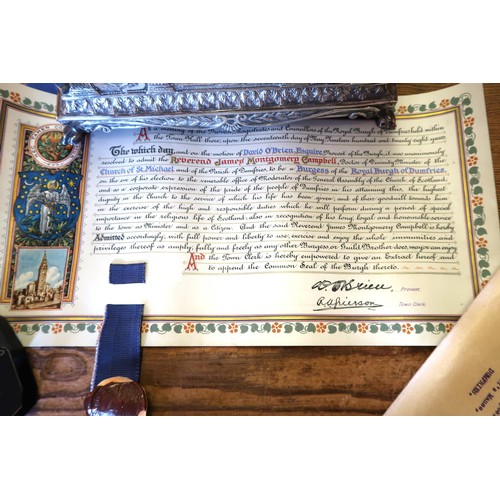 At a meeting of the Provost, Magistrates and Councillors of the Royal Burgh of Dumfries held within
the Town Hall there, upon the seventeenth day of May Nineteen hundred and twenty eight years
The which day, and on the motion of David O'Brien Esquire Provost of the Burgh, it was unanimously
resolved to admit the Reverend James Montgomery Campbell, Doctor of Divinity Minister of the
Church of St. Michael and of the Parish of Dumfries, to be a Burgess of the Royal Burgh of Dumfries,
on the eve of his election to the venerable office of Moderator of the General Assembly of the Church of Scotland,
and as a corporate expression of the pride of the people of Dumfries in his attaining this, the highest
dignity in the Church to the service of which his life has been given, and of their goodwill towards him
in the exercise of the high and responsible duties which he will perform during a period of special
importance in the religious life of Scotland; also in recognition of his long, loyal and honourable service
to the town as Minister and as a Citizen. And the said Reverend James Montgomery Campbell is hereby
Admitted accordingly, with full power and liberty to use, exercise and enjoy the whole immunities and
privileges thereof as amply, fully and freely as any other Burgess or Guild Brother does, may or can enjoy
And the Town Clerk is hereby empowered to give an Extract hereof, and
to append the Common Seal of the Burgh thereto.
D. O'Brien Provost.
R.A. Grierson Town Clerk.
DUMFRIES.